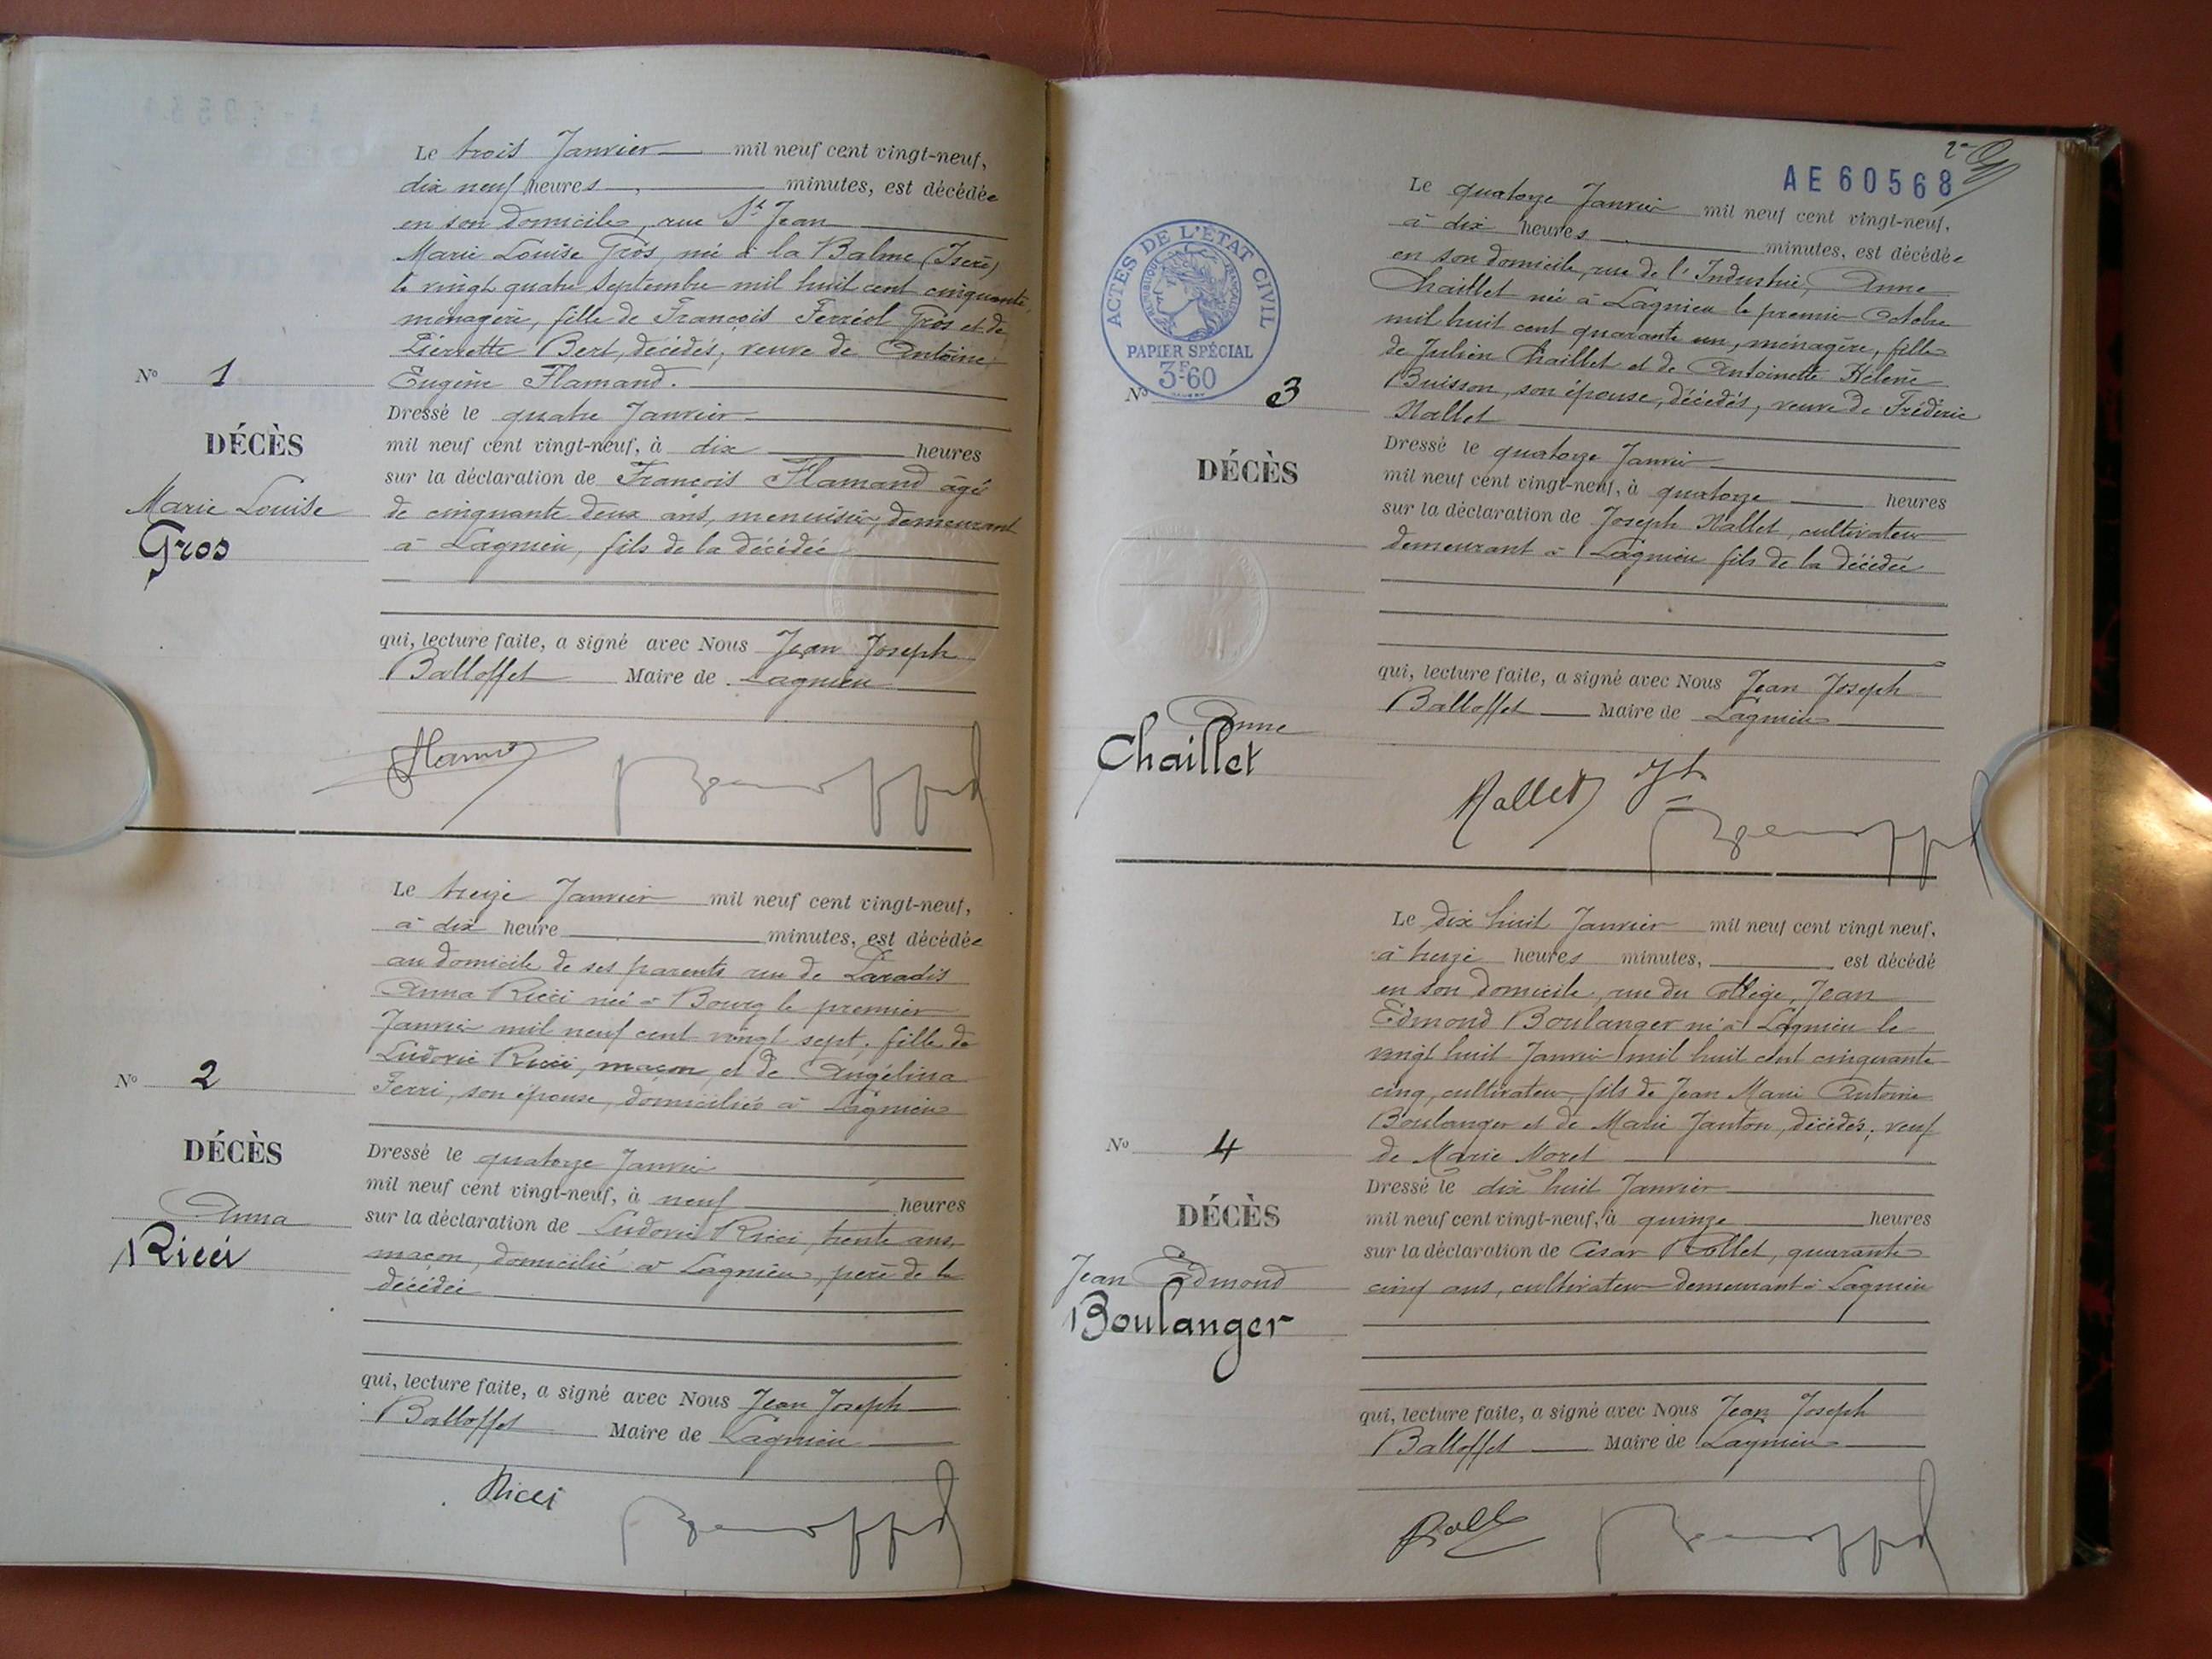 Le trois Janvier mil neuf cent vingt-neuf,
dix neuf heures, minutes, est décédée
en son domicile, rue St Jean
Marie Louise Gros, née à la Balme (Isère)
le vingt quatre Septembre mil huit cent cinquante,
ménagère, fille de François Ferréol Gros et de
Pierrette Bert, décédés, veuve de Antoine
Eugène Flamand.
Nº 1
DÉCÈS
Marie Louise
Gros
Dressé le quatre Janvier
mil neuf cent vingt-neuf, à dix heures
sur la déclaration de François Flamand âgé
de cinquante deux ans, menuisier, demeurant
à Lagnieu, fils de la décédée
qui, lecture faite, a signé avec Nous Jean Joseph
Balloffet Maire de Lagnieu
Le treize Janvier mil neuf cent vingt-neuf,
à dix heure minutes, est décédée
au domicile de ses parents rue de Paradis
Anna Ricci née à Bourg le premier
Janvier mil neuf cent vingt sept, fille de
Ludovic Ricci, maçon, et de Angélina
Ferri, son épouse, domiciliés à Lagnieu
Nº 2
DÉCÈS
Anna
Ricci
Dressé le quatorze Janvier
mil neuf cent vingt-neuf, à neuf heures
sur la déclaration de Ludovic Ricci, trente ans,
maçon, domicilié à Lagnieu, père de la
décédée
qui, lecture faite, a signé avec Nous Jean Joseph
Balloffet Maire de Lagnieu
Ricci
AE60568
Le quatorze Janvier mil neuf cent vingt-neuf,
à dix heures minutes, est décédée
en son domicile, rue de l'Industrie, Anne
Chaillet née à Lagnieu le premier Octobre
mil huit cent quarante un, ménagère, fille
de Julien Chaillet et de Antoinette Hélène
Buisson, son épouse, décédés, veuve de Frédéric
Nallet
ACTES DE L'ÉTAT CIVIL
RÉPUBLIQUE FRANÇAISE
PAPIER SPÉCIAL
3F60
Nº 3
DÉCÈS
Anne
Chaillet
Dressé le quatorze Janvier
mil neuf cent vingt-neuf, à quatorze heures
sur la déclaration de Joseph Nallet, cultivateur
demeurant à Lagnieu fils de la décédée
qui, lecture faite, a signé avec Nous Jean Joseph
Balloffet Maire de Lagnieu
Nallet Jh
Le dix huit Janvier mil neuf cent vingt neuf,
à treize heures minutes, est décédé
en son domicile, rue du Collège, Jean
Edmond Boulanger né à Lagnieu le
vingt huit Janvier mil huit cent cinquante
cinq, cultivateur, fils de Jean Marie Antoine
Boulanger et de Marie Janton, décédés, veuf
de Marie Morel
Nº 4
DÉCÈS
Jean Edmond
Boulanger
Dressé le dix huit Janvier
mil neuf cent vingt-neuf, à quinze heures
sur la déclaration de César Rollet, quarante
cinq ans, cultivateur demeurant à Lagnieu
qui, lecture faite, a signé avec Nous Jean Joseph
Balloffet Maire de Lagnieu